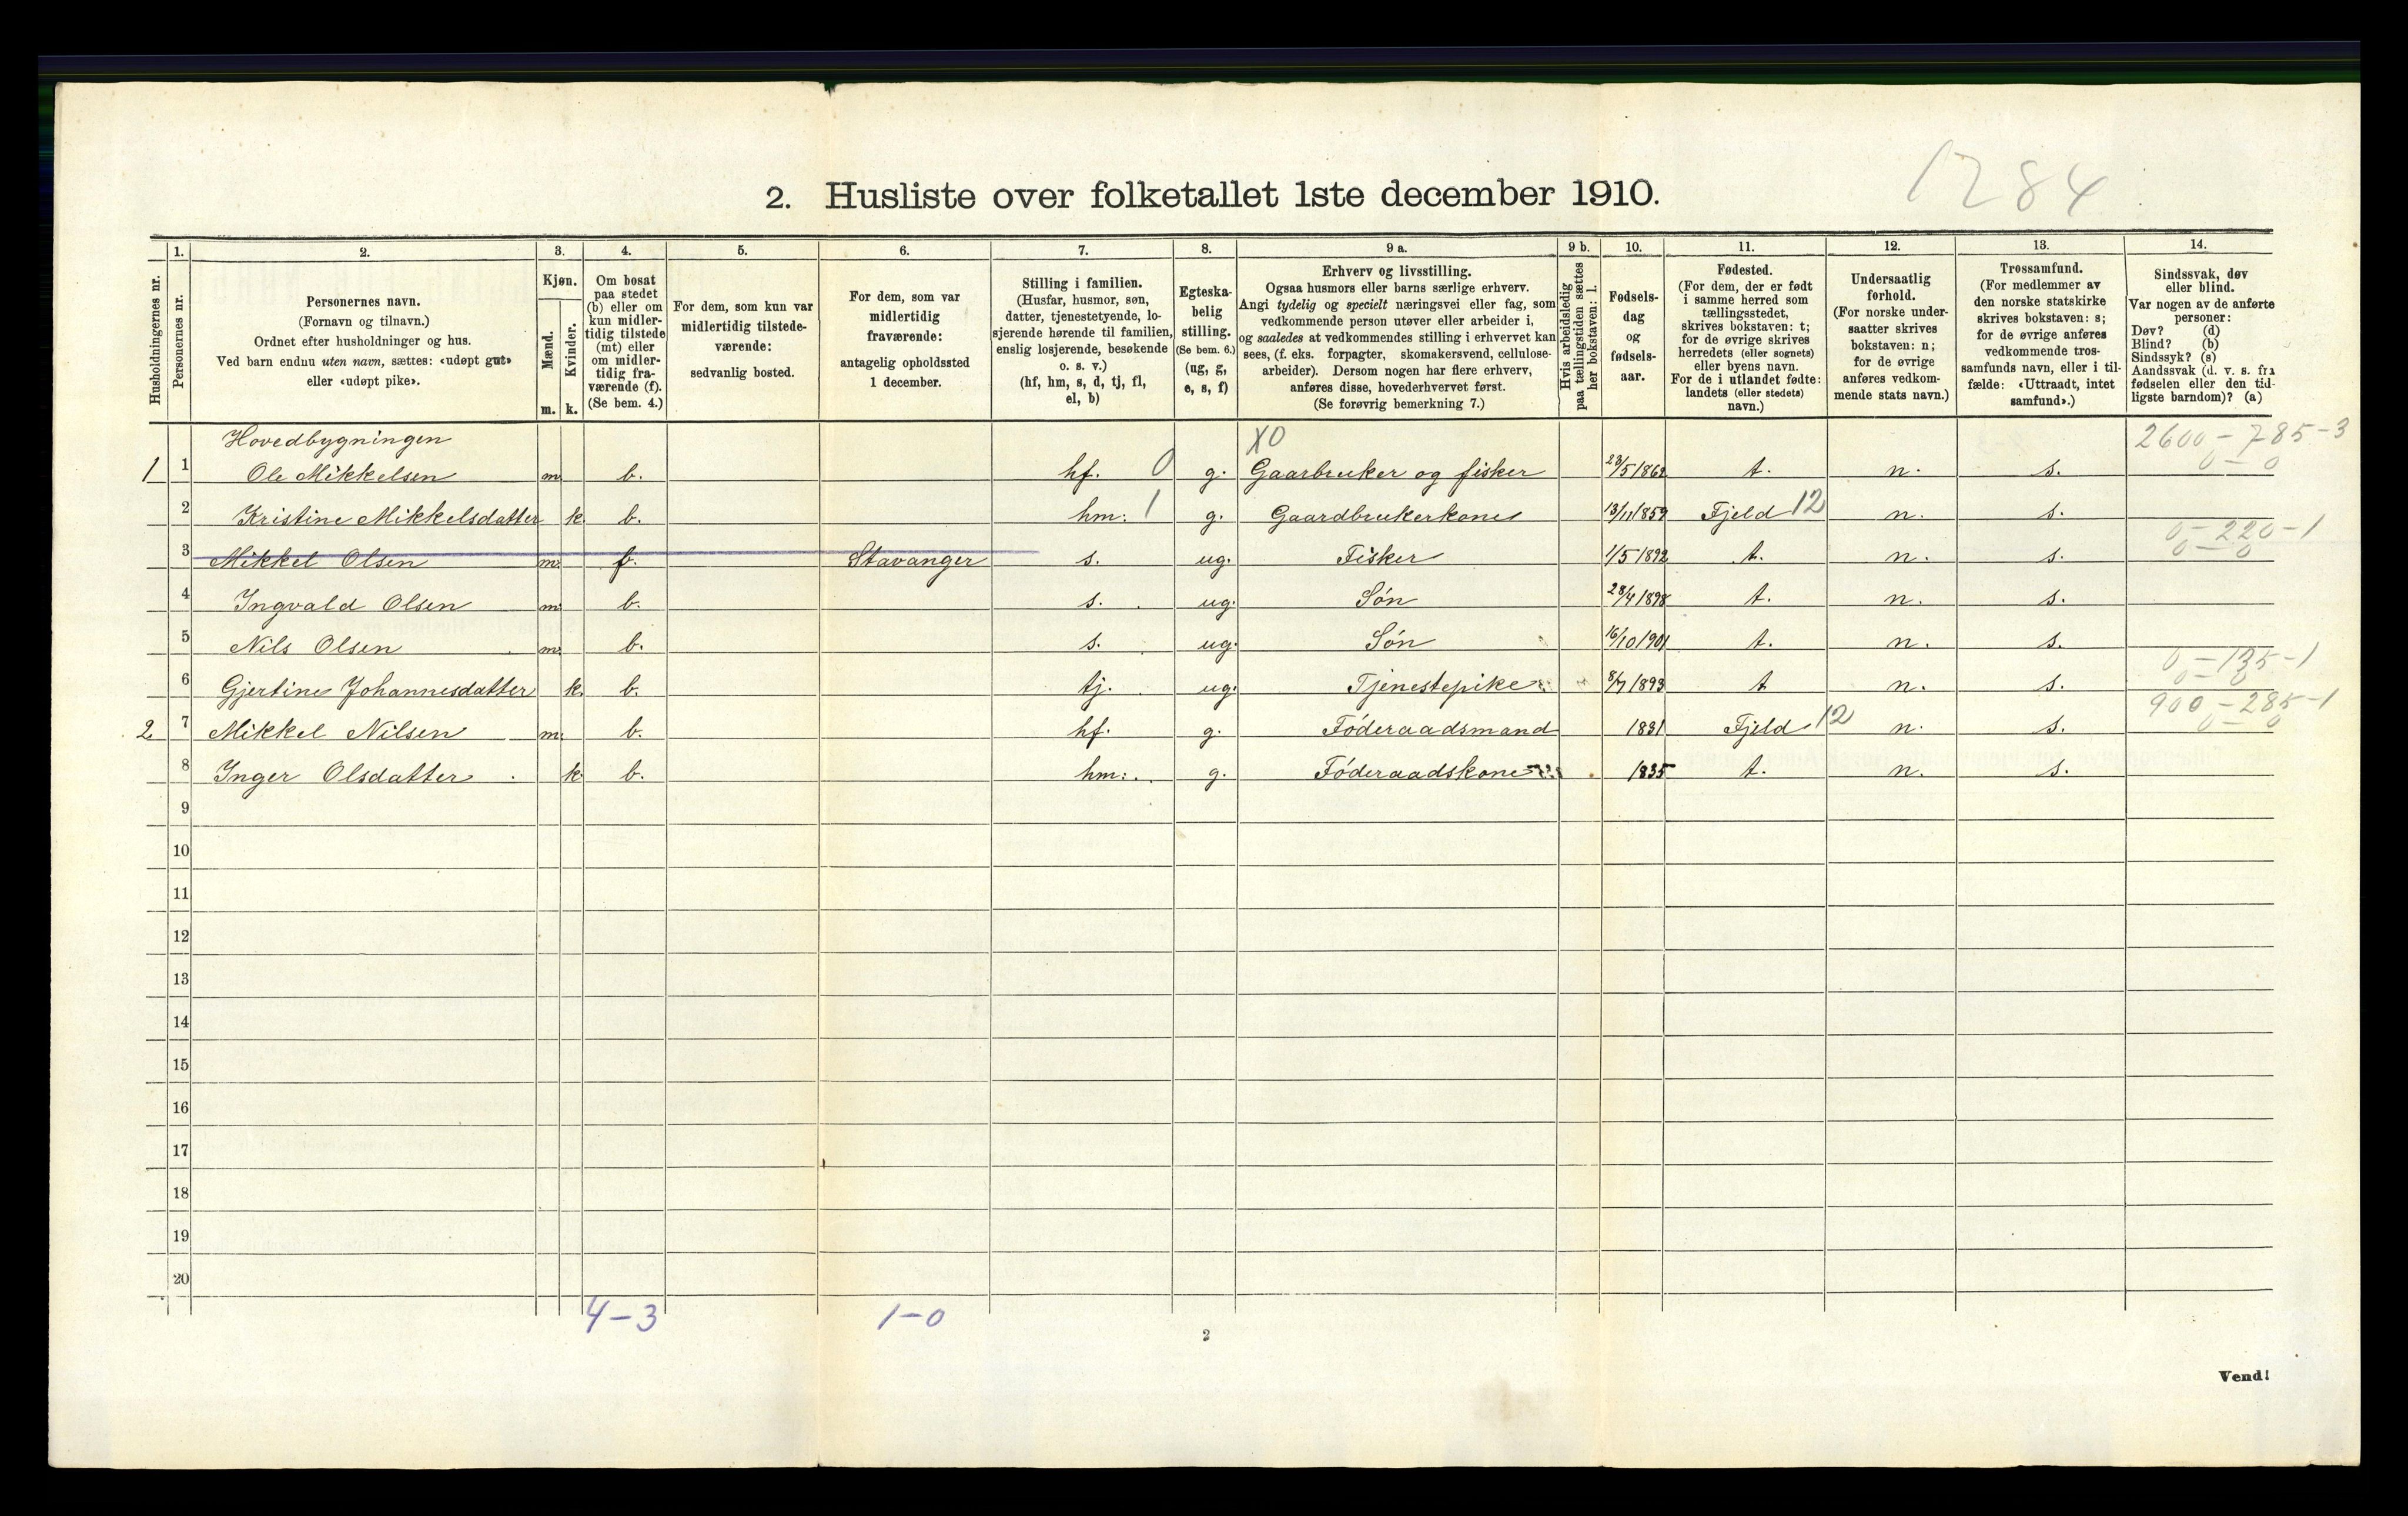 1284
2. Husliste over folketallet 1ste december 1910.
Husholdningernes nr.
1. Personernes nr.
2.
Personernes navn.
(Fornavn og tilnavn.)
Ordnet efter husholdninger og hus.
Ved barn endnu uten navn, sættes: «udøpt gut»
eller «udøpt pike».
3.
Kjøn.
Mænd.
Kvinder.
m. k.
4.
Om bosat
paa stedet
(b) eller om
kun midler-
tidig tilstede
(mt) eller
om midler-
tidig fra-
værende (f).
(Se bem. 4.)
5.
For dem, som kun var
midlertidig tilstede-
værende:
sedvanlig bosted.
6.
For dem, som var
midlertidig
fraværende:
antagelig opholdssted
1 december.
7.
Stilling i familien.
(Husfar, husmor, søn,
datter, tjenestetyende, lo-
sjerende hørende til familien,
enslig losjerende, besøkende
o. s. v.)
(hf, hm, s, d, tj, fl,
el, b)
8.
Egteska-
belig
stilling.
(Se bem. 6.)
(ug, g,
e, s, f)
9 a.
Erhverv og livsstilling.
Ogsaa husmors eller barns særlige erhverv.
Angi tydelig og specielt næringsvei eller fag, som
vedkommende person utøver eller arbeider i,
og saaledes at vedkommendes stilling i erhvervet kan
sees, (f. eks. forpagter, skomakersvend, cellulose-
arbeider). Dersom nogen har flere erhverv,
anføres disse, hovederhvervet først.
(Se forøvrig bemerkning 7.)
9 b.
Hvis arbeidsledig
paa tællingstiden sættes
her bokstaven: l.
10.
Fødsels-
dag
og
fødsels-
aar.
11.
Fødested.
(For dem, der er født
i samme herred som
tællingsstedet,
skrives bokstaven: t;
for de øvrige skrives
herredets (eller sognets)
eller byens navn.
For de i utlandet fødte:
landets (eller stedets)
navn.)
12.
Undersaatlig
forhold.
(For norske under-
saatter skrives
bokstaven: n;
for de øvrige
anføres vedkom-
mende stats navn.)
13.
Trossamfund.
(For medlemmer av
den norske statskirke
skrives bokstaven: s;
for de øvrige anføres
vedkommende tros-
samfunds navn, eller i til-
fælde: «Uttraadt, intet
samfund».)
14.
Sindssvak, døv
eller blind.
Var nogen av de anførte
personer:
Døv? (d)
Blind? (b)
Sindssyk? (s)
Aandssvak (d. v. s. fra
fødselen eller den tid-
ligste barndom)? (a)
Hovedbygningen X0 2600 - 785-3
1 1 Ole Mikkelsen m. b. hf. 0 g. Gaarbruker og fisker 23/5 1862 t. n. s. 0 - 0
2 Kristine Mikkelsdatter k. b. hm. 1 g. Gaardbrukerkone 13/11 1859 Fjeld 12 n. s.
0-220-1
3 Mikkel Olsen m. f. Stavanger s. ug. Fisker 1/5 1892 t. n. s. 0-0
4 Ingvald Olsen m. b. s. ug. Søn 28/4 1898 t. n. s.
5 Nils Olsen m. b. s. ug. Søn 16/10 1901 t. n. s.
0-135-1
6 Gjertine Johannesdatter k. b. tj. ug. Tjenestepike 8/7 1893 t n. s. 0-0
900-285-1
2 7 Mikkel Nilsen m. b. hf. g. Føderaadsmand 1831 Fjeld 12 n. s. 0-0
8 Inger Olsdatter k. b. hm. g. Føderaadskone 1835 t. n. s.
9
10
11
12
13
14
15
16
17
18
19
20
4-3 1-0
2
Vend!